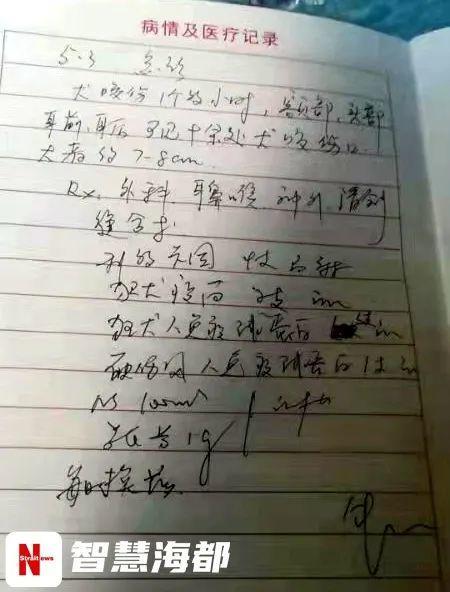 病情及医疗记录
5.3 急诊
犬咬伤1个多小时，额部，头部
耳前、耳后可见十余处犬咬伤口
大者约7-8cm
Rx. 外科 耳鼻喉 神外 清创
缝合术
狂犬疫苗 im
狂犬人免疫球蛋白 im
破伤风人免疫球蛋白 im
NS 100ml
1g
每日换药
N
Straitnews
智慧海都